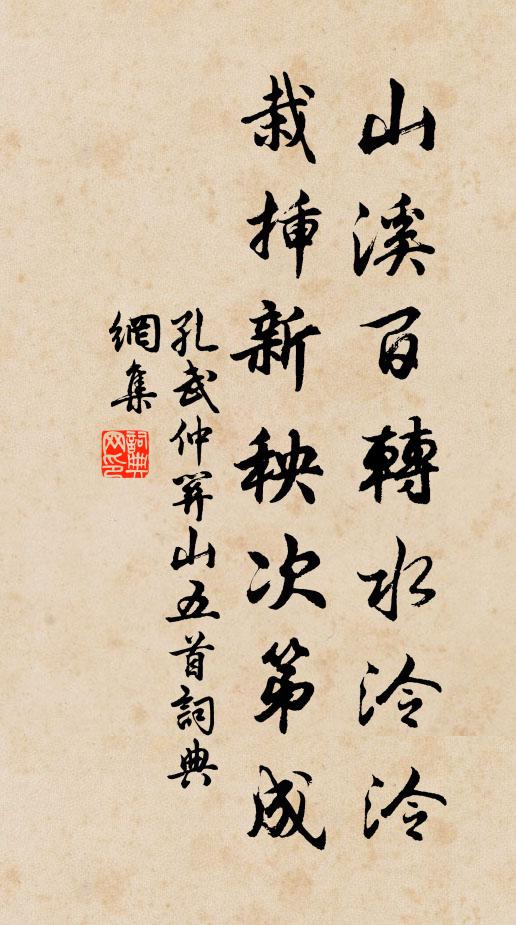 山溪百轉水泠泠
栽揷新秧次第成
孔武仲羿山五首詞典
網集
詞典網印